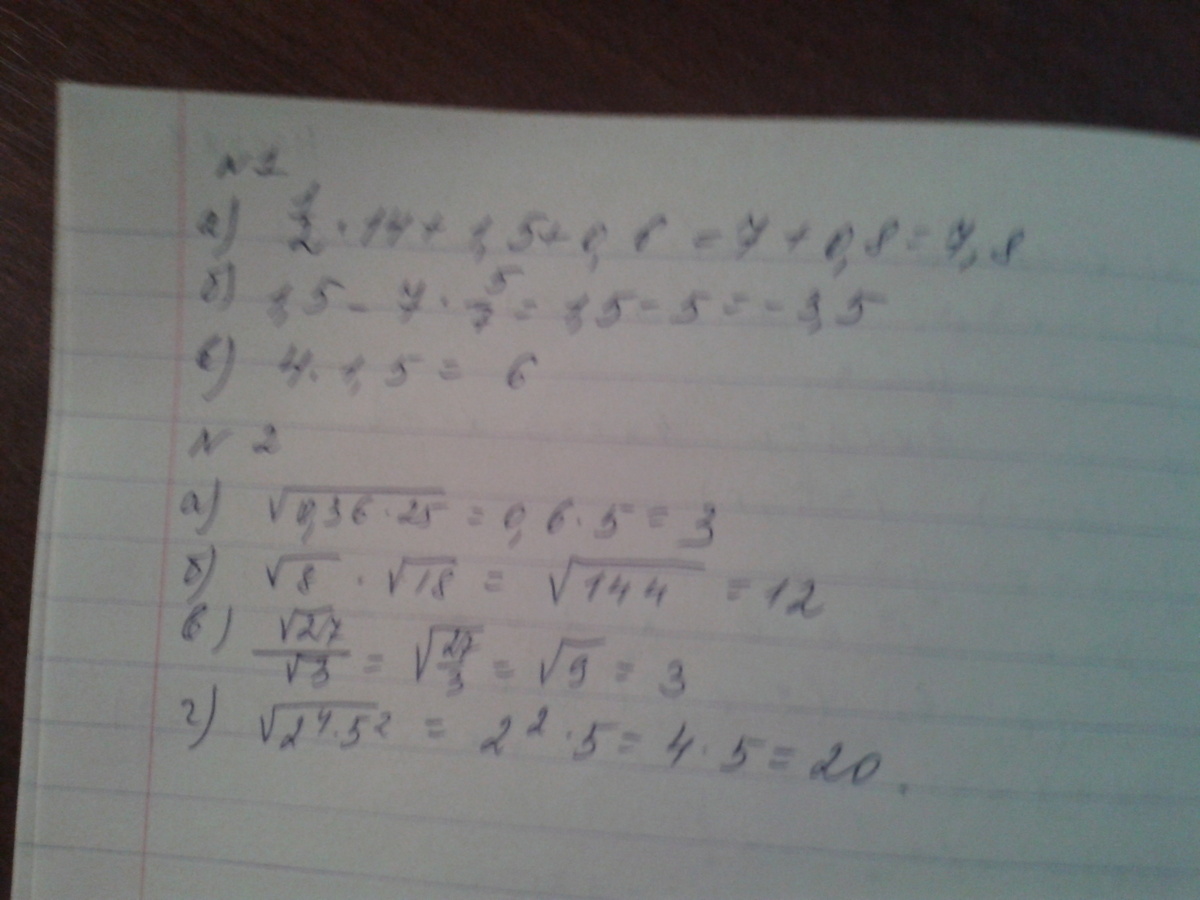 №1
а) 1/2 · 14 + 1,5 + 0,6 = 7 + 0,8 = 7,8
б) 1,5 - 7 · 5/7 = 1,5 - 5 = -3,5
в) 4 · 1,5 = 6
№ 2
а) √(0,36 · 25) = 0,6 · 5 = 3
б) √8 · √18 = √144 = 12
в) √27/√3 = √(27/3) = √9 = 3
г) √(2⁴ · 5²) = 2² · 5 = 4 · 5 = 20.